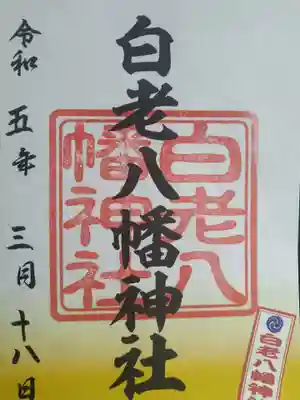 白老八幡神社
白老八
幡神社
令和五年三月十八日
白老八幡神